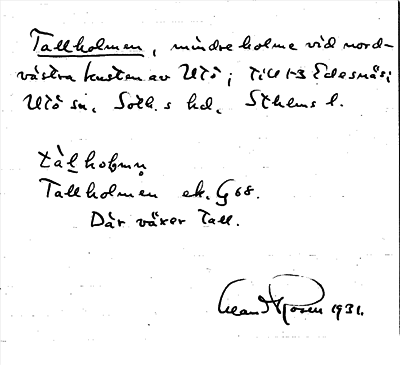 Tallholmen, mindre holme vid nord-
västra kusten av Utö; till 1-3 Edesnäs;
Utö sn. Soth.s hd. Sthlms l.
tàlhoḷmṇ
Tallholmen ek. G 68.
Där växer Tall.
Rosen 1931.